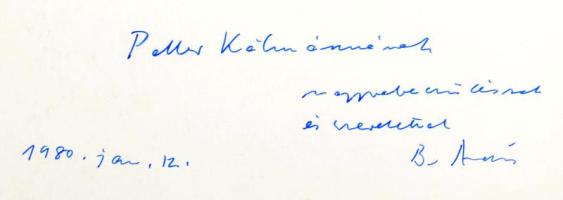 Peller Kálmánnénak
nagyrabecsüléssel
és szeretettel
1980. jan. 12. B.